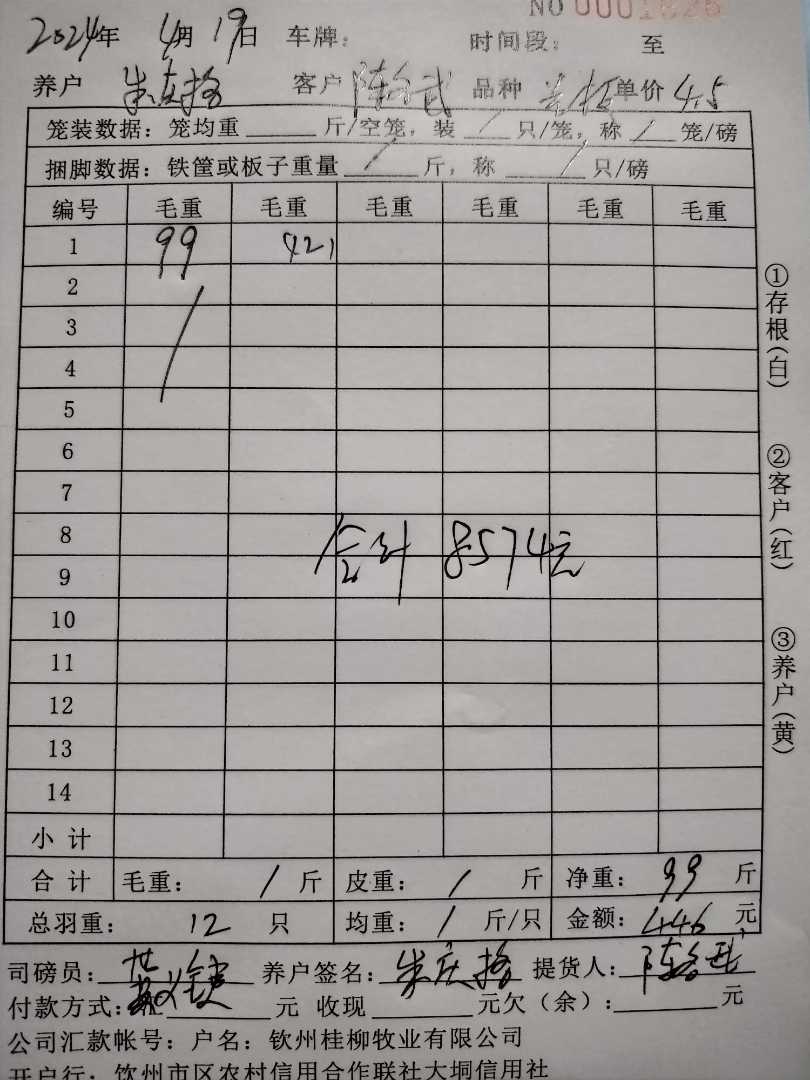 NO 0001626
2024年 4月 19日 车牌: 时间段: 至
养户 朱庆搭 客户 陈 武 品种 单价 4.5
笼装数据: 笼均重 斤/空笼, 装 / 只/笼, 称 / 笼/磅
捆脚数据: 铁筐或板子重量 / 斤, 称 / 只/磅
编号 毛重 毛重 毛重 毛重 毛重 毛重
1 99 421
2
3
4
5
6
7
8
合计 8574元
9
10
11
12
13
14
小计
合计 毛重: / 斤 皮重: / 斤 净重: 99 斤
总羽重: 12 只 均重: / 斤/只 金额: 446 元
司磅员: 养户签名: 朱庆搭 提货人: 陈 武
付款方式: 元 收现 元欠(余): 元
公司汇款帐号: 户名: 钦州桂柳牧业有限公司
开户行: 钦州市区农村信用合作联社大垌信用社
①存根(白)
②客户(红)
③养户(黄)